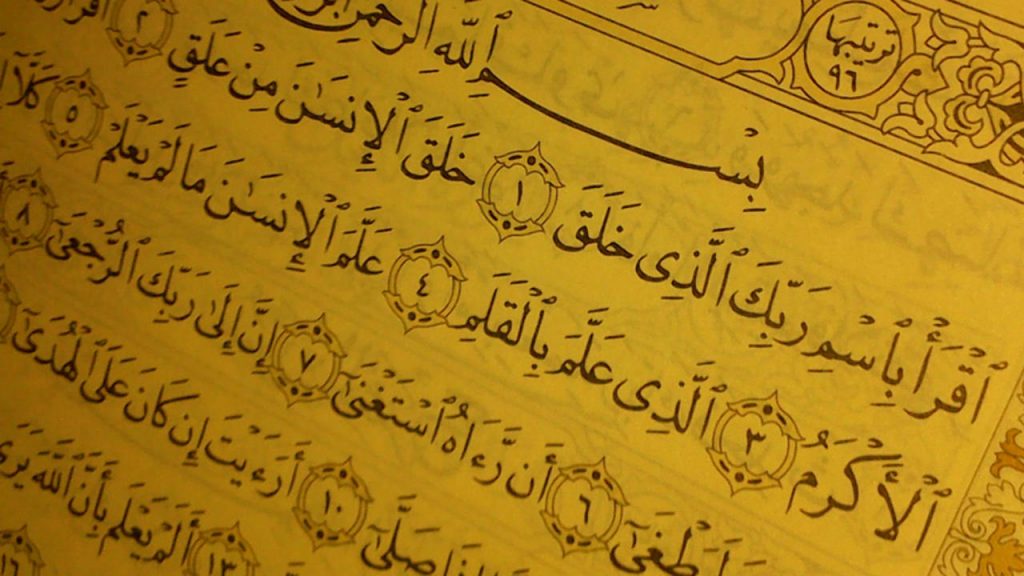 ترتيبها
٩٦
بِسْمِ ٱللَّهِ ٱلرَّحْمَٰنِ
ٱقْرَأْ بِٱسْمِ رَبِّكَ ٱلَّذِى خَلَقَ ١ خَلَقَ ٱلْإِنسَٰنَ مِنْ عَلَقٍ ٢
ٱلْأَكْرَمُ ٣ ٱلَّذِى عَلَّمَ بِٱلْقَلَمِ ٤ عَلَّمَ ٱلْإِنسَٰنَ مَا لَمْ يَعْلَمْ ٥ كَلَّآ
٦ أَن رَّءَاهُ ٱسْتَغْنَىٰٓ ٧ إِنَّ إِلَىٰ رَبِّكَ ٱلرُّجْعَىٰٓ ٨
صَلَّىٰٓ ١٠ أَرَءَيْتَ إِن كَانَ عَلَى ٱلْهُدَىٰٓ
١٣ أَلَمْ يَعْلَم بِأَنَّ ٱللَّهَ يَرَىٰ
١٦